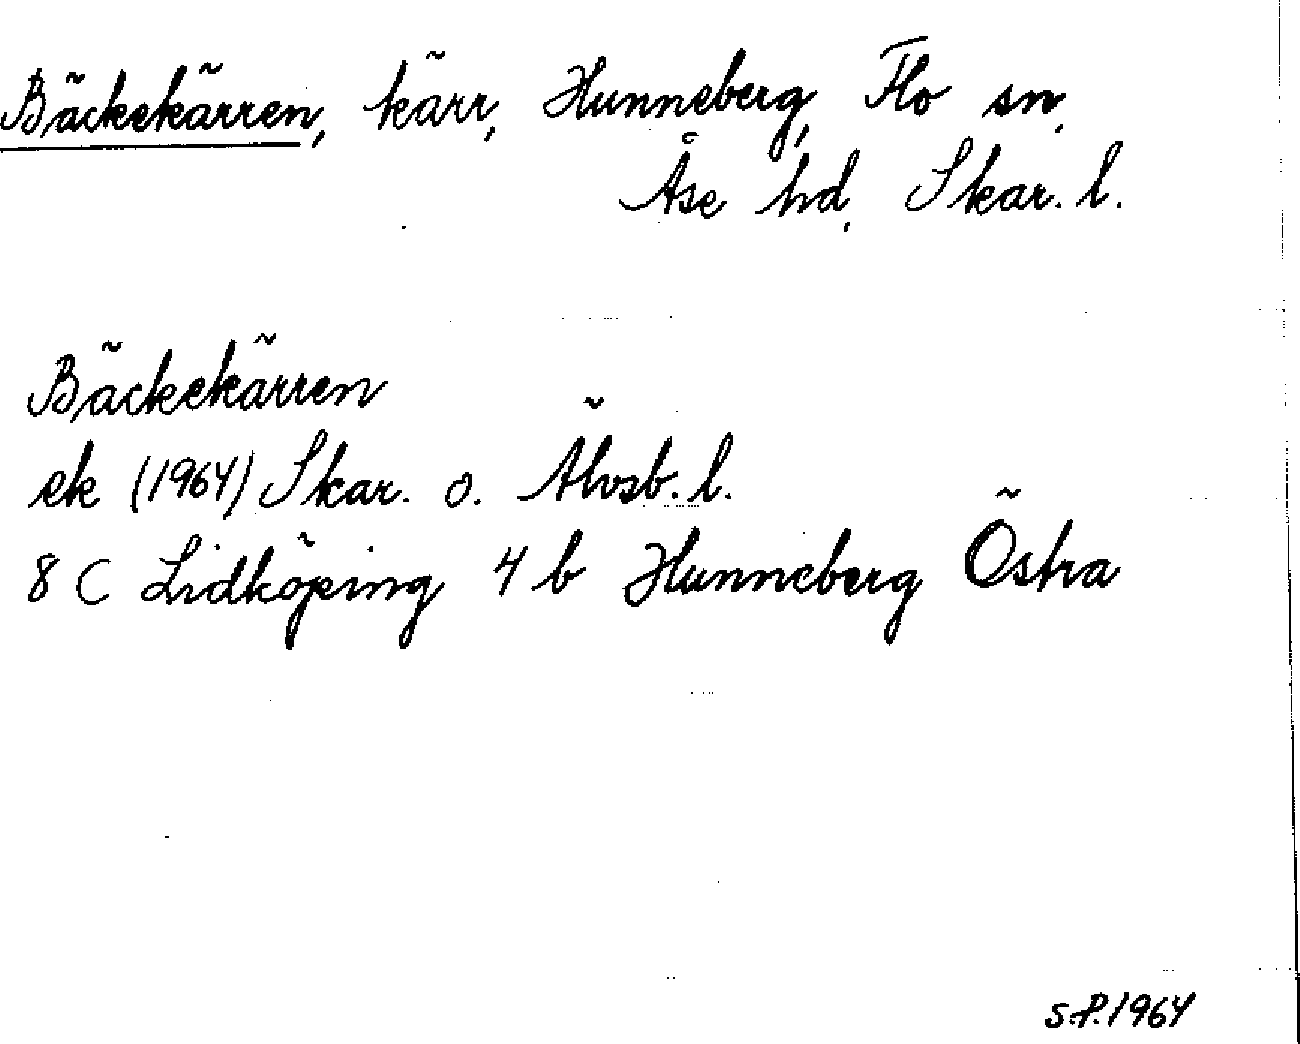 Bäckekärren, kärr, Hunneberg, Flo sn,
Åse hd, Skar. l.
Bäckekärren
ek (1964) Skar. o. Älvsb. l.
8 C Lidköping 4 b Hunneberg Östra
S.P. 1964